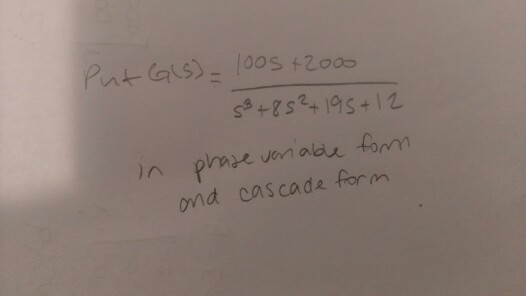 Put G(s) = 100s + 2000
s³ + 8s² + 19s + 12
in phase variable form
and cascade form